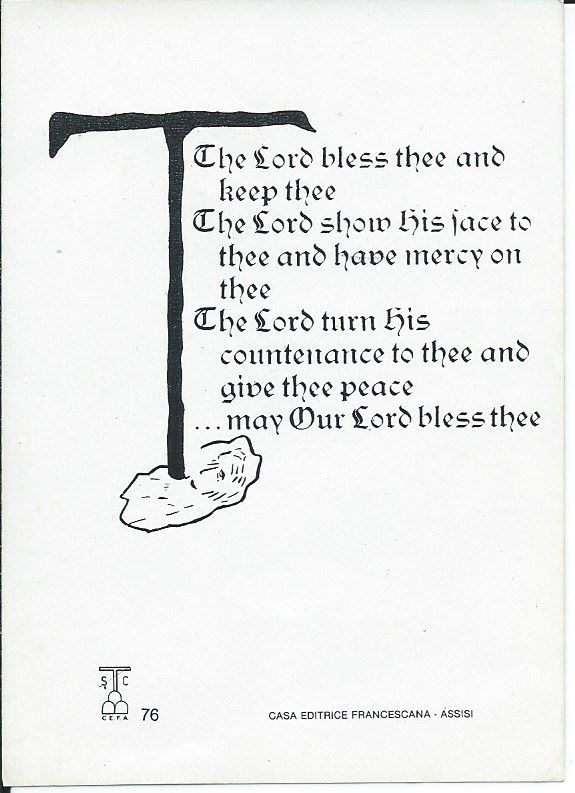 The Lord bless thee and
keep thee
The Lord show His face to
thee and have mercy on
thee
The Lord turn His
countenance to thee and
give thee peace
...may Our Lord bless thee
S C
C.E.F.A.
76
CASA EDITRICE FRANCESCANA - ASSISI